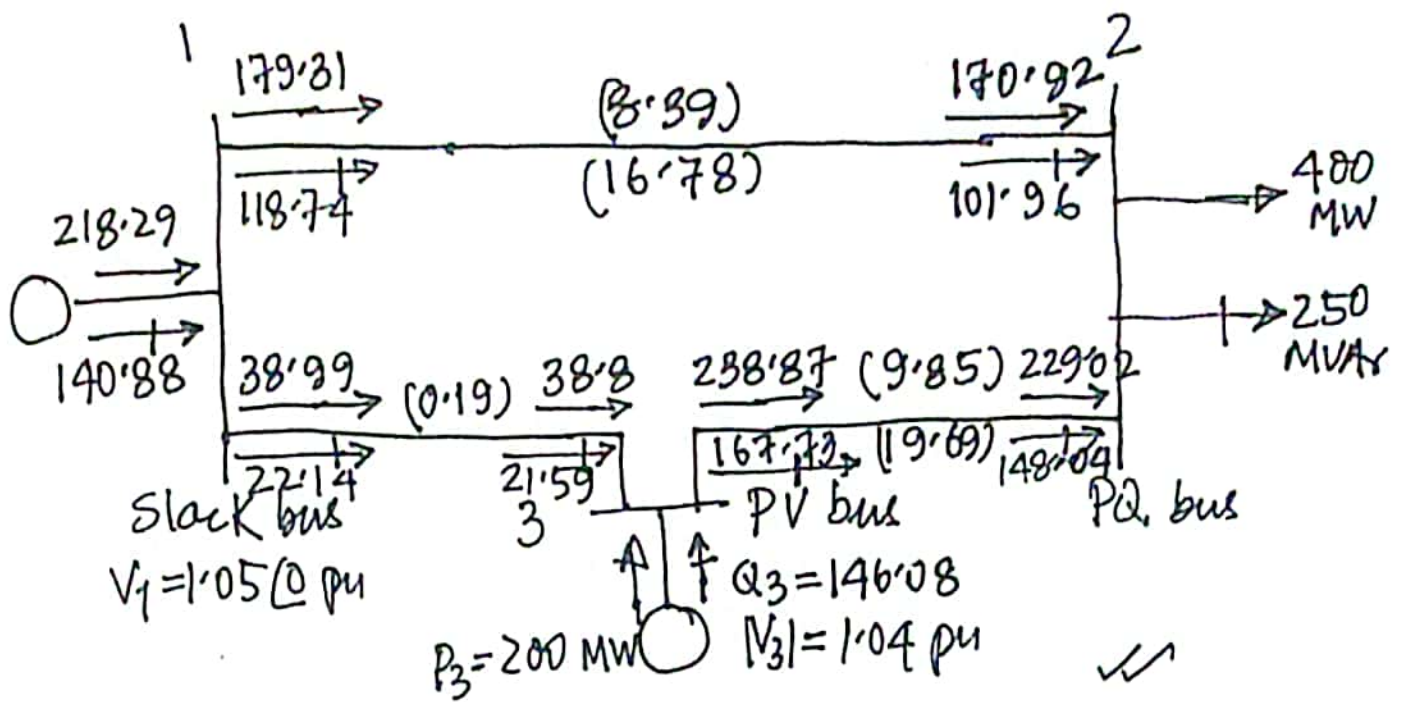 1
2
179.31
(8.39)
170.92
118.74
(16.78)
101.96
400
MW
218.29
140.88
250
MVAr
38.99
(0.19)
38.8
238.87
(9.85)
229.02
22.14
21.59
167.73
(19.69)
148.04
Slack bus
3
PV bus
PQ. bus
V1 = 1.05∠0 pu
Q3 = 146.08
P3 = 200 MW
|V3| = 1.04 pu